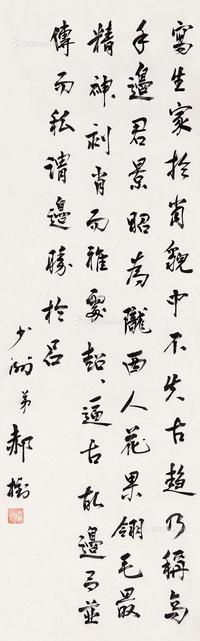 寫生家於肖貌中不失古趣乃稱高
手邊君景昭為隴西人花果翎毛最
精神刻肖而雅超、逼古故邊呂並
傳而私謂邊勝於呂
少洲弟郝樹